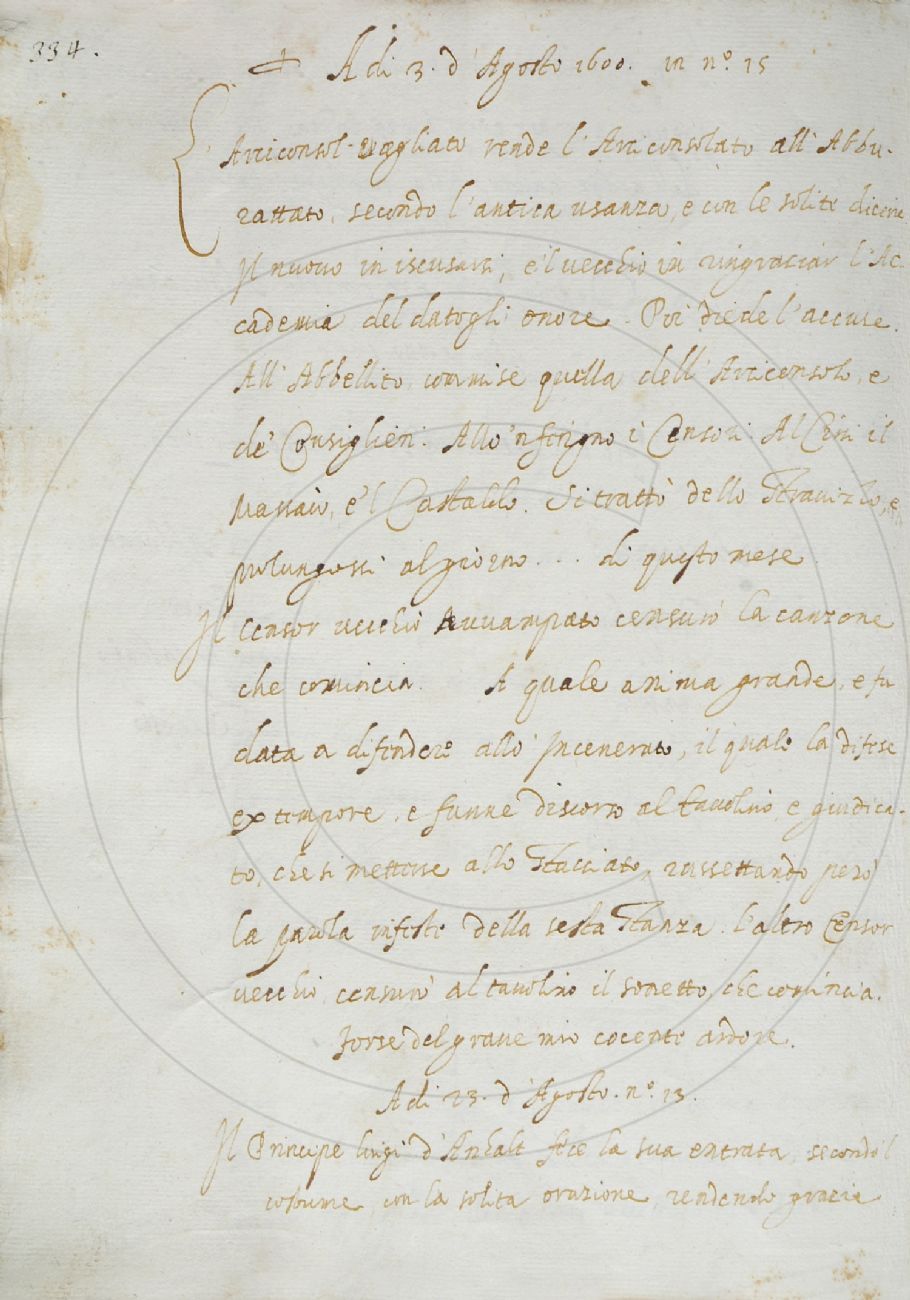 334.
+ A di 3. d'Agosto 1600. in n.º 15
Arciconsol Vagliato rende l'Arciconsolato all'Abbu-
rattato, secondo l'antica usanza, e con le solite dicerie
Il nuovo in iscusarsi, e'l vecchio in ringraziar l'Ac-
cademia del datogli onore. Poi diede l'accuse.
All'Abbellito commise quella dell'Arciconsolo, e
de' Consiglieri. Allo 'nferigno i Censori. Al Cini il
Massaio, e'l Castaldo. Si trattò dello Stravizzo, e
prolungossi al giorno . . . di questo mese
Il Censor vecchio Avvampato censurò la canzone
che comincia. A quale anima grande, e fu
data a difendere allo 'ncenerato, il quale la difese
ex tempore, e funne discorso al tavolino, e giudica-
to, che si mettesse allo Stacciato, rassettando però
la parola infeste della sesta Stanza. L'altro Censor
vecchio censurò al tavolino il sonetto, che comincia.
Forse del grave mio cocente ardore.
A di 23. d'Agosto. n.º 13.
Il Principe Luigi d'Anhalt fece la sua entrata, secondo'l
costume, con la solita orazione, rendendo grazie